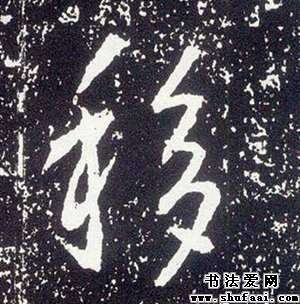 移
书法爱网
www.shufaai.com